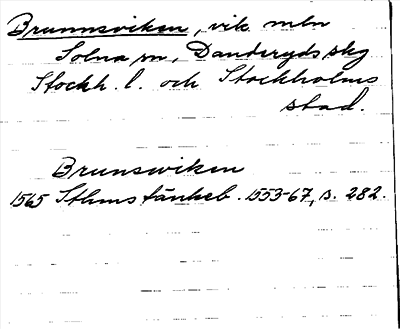 Brunnsviken, vik mln
Solna sn, Danderyds skg
Stockh. l. och Stockholms
stad.
Brunswiken
1565 Sthms tänkeb. 1553-67, s. 282.